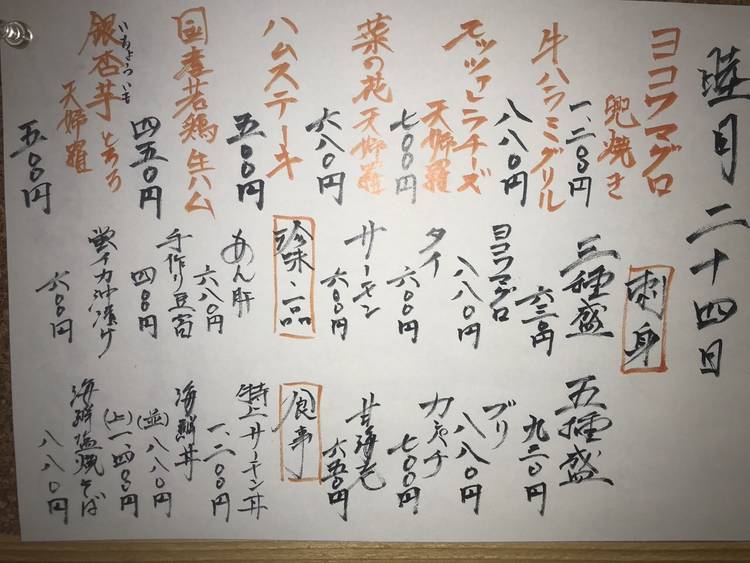 睦月二十四日
ヨコワマグロ
兜焼き
一、二〇〇円
牛ハラミグリル
八八〇円
モッツァレラチーズ
天婦羅
七〇〇円
菜の花天婦羅
六八〇円
ハムステーキ
五〇〇円
国産若鶏生ハム
四五〇円
いちょういも
銀杏芋とろろ
天婦羅
五〇〇円
刺身
三種盛
六三〇円
ヨコワマグロ
八八〇円
タイ
六〇〇円
サーモン
六〇〇円
五種盛
九三〇円
ブリ
八八〇円
カンパチ
七〇〇円
甘海老
六五〇円
珍味・一品
あん肝
六八〇円
手作り豆富
四〇〇円
蛍イカ沖漬け
六〇〇円
食事
特上サーモン丼
一、二〇〇円
海鮮丼
(並)八八〇円
(上)一、四〇〇円
海鮮塩焼そば
八八〇円